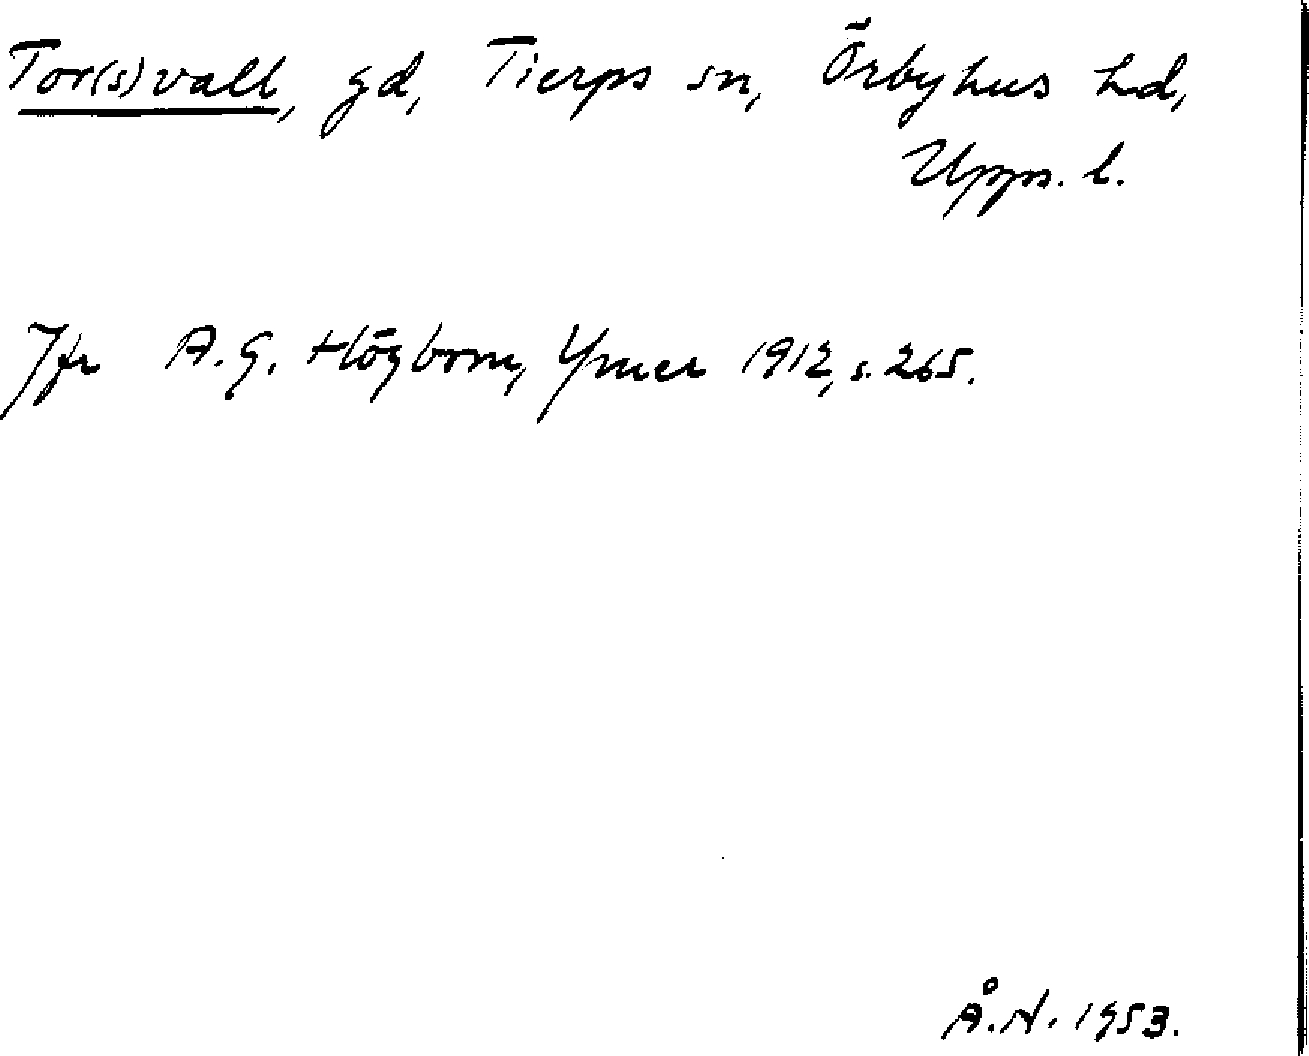 Tor(s)vall, gd, Tierps sn, Örbyhus hd,
Upps. l.
Jfr A.G. Högbom, Ymer 1912, s. 265.
Å.N. 1953.